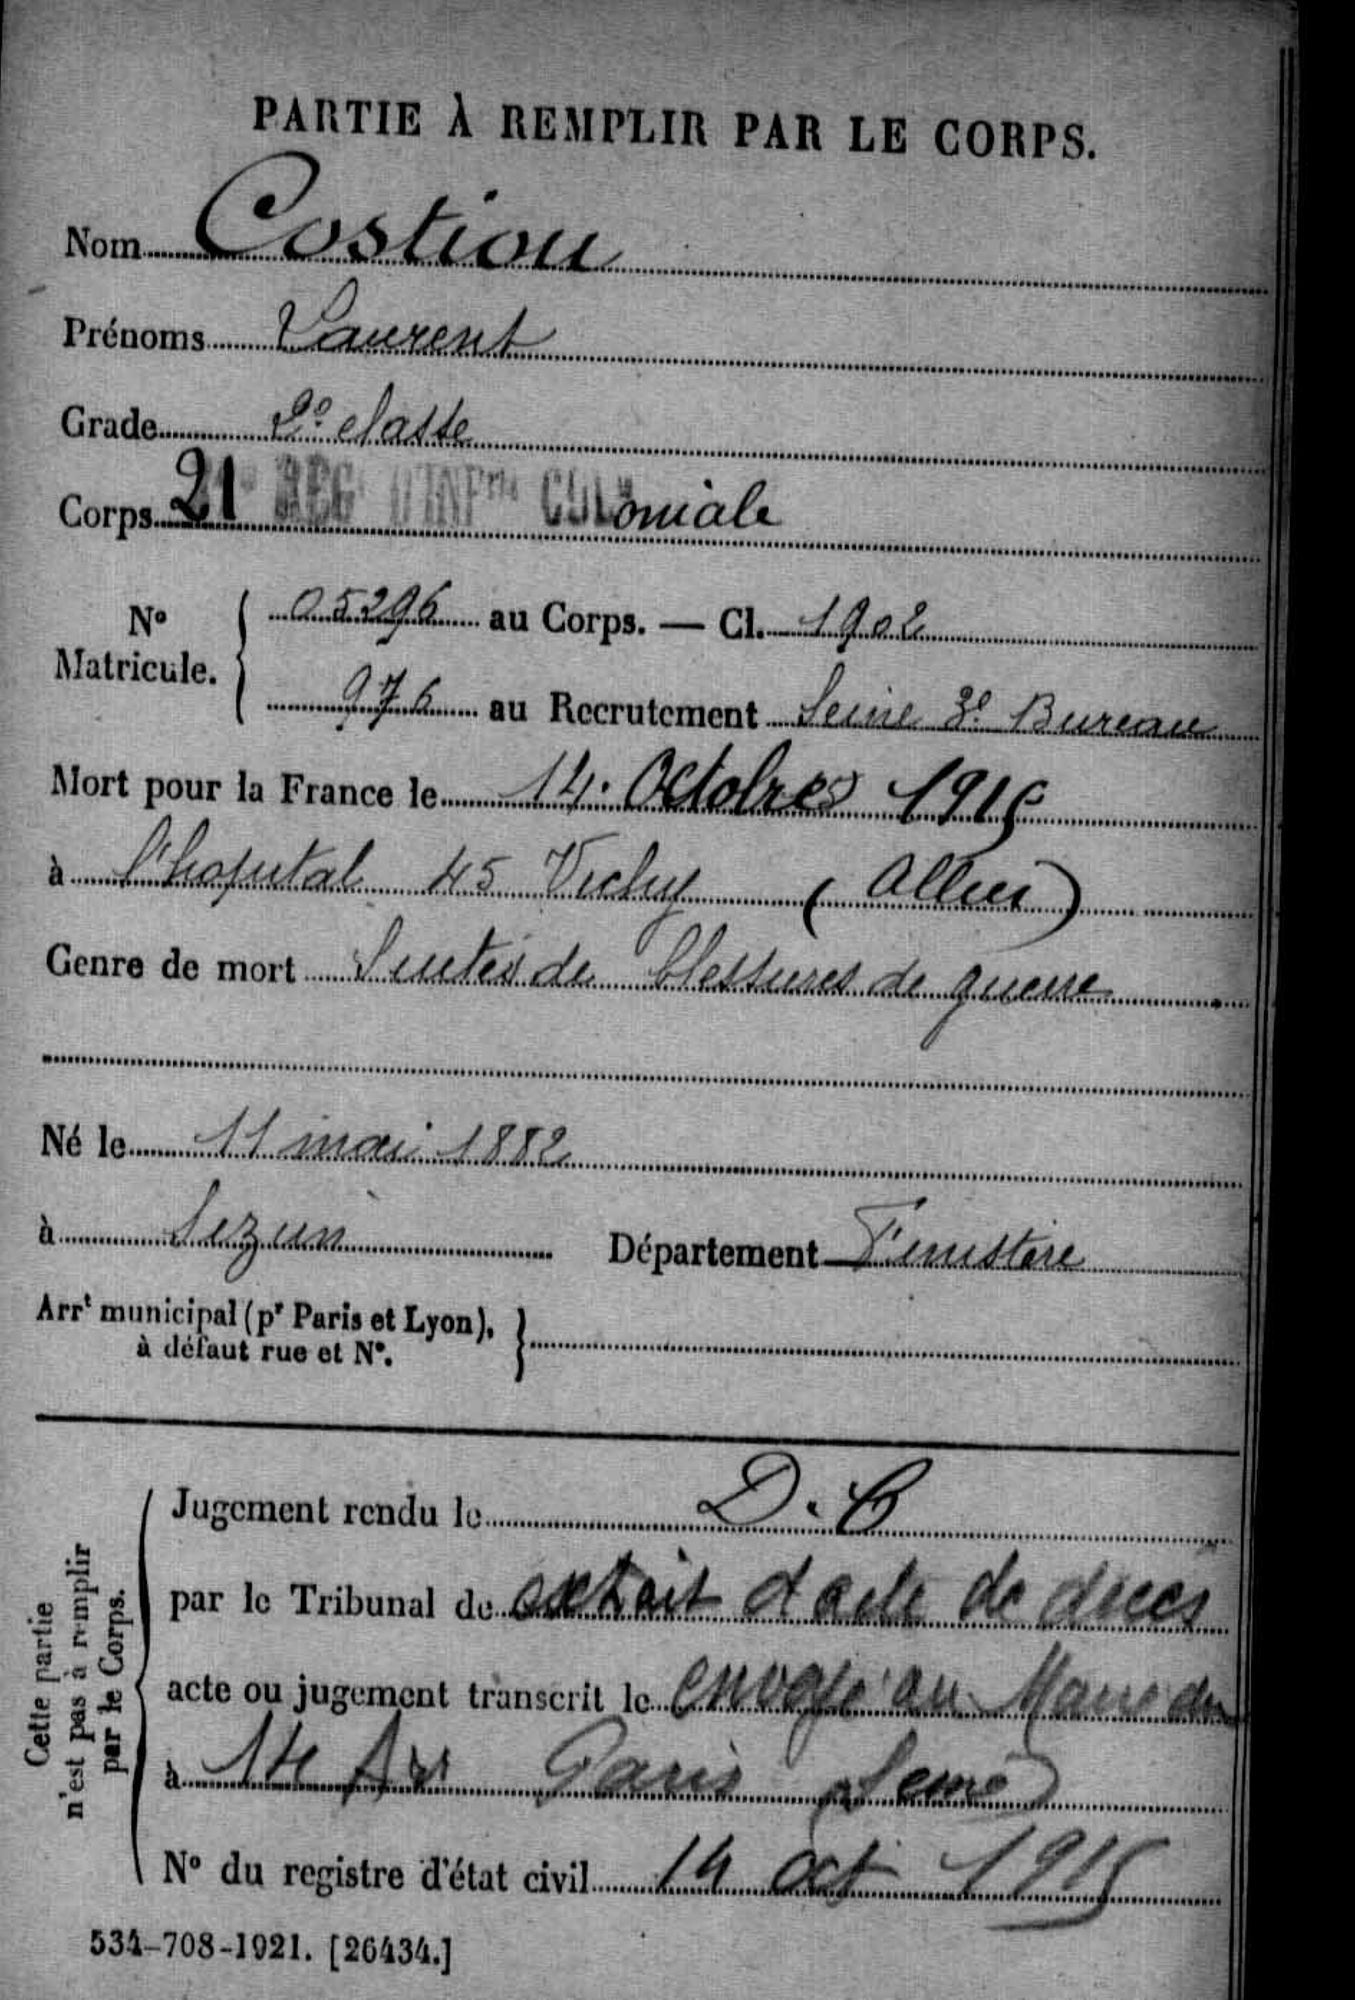 PARTIE À REMPLIR PAR LE CORPS.
Nom Costiou
Prénoms Laurent
Grade 2e classe
Corps 21e REGt D'INFrie COLoniale
No Matricule. { 05296 au Corps. — Cl. 1902
976 au Recrutement Seine 3e Bureau
Mort pour la France le 14 Octobre 1915
à l'hopital 45 Vichy (Allier)
Genre de mort Suites de blessures de guerre
Né le 11 mai 1882
à Sizun Département Finistère
Arrt municipal (pr Paris et Lyon), à défaut rue et No. }
Cette partie n'est pas à remplir par le Corps.
Jugement rendu le D. C
par le Tribunal de extrait d'acte de décès
acte ou jugement transcrit le envoyé au Maire du
à 14e Arr Paris (Seine)
No du registre d'état civil 14 oct 1915
534-708-1921. [26434.]